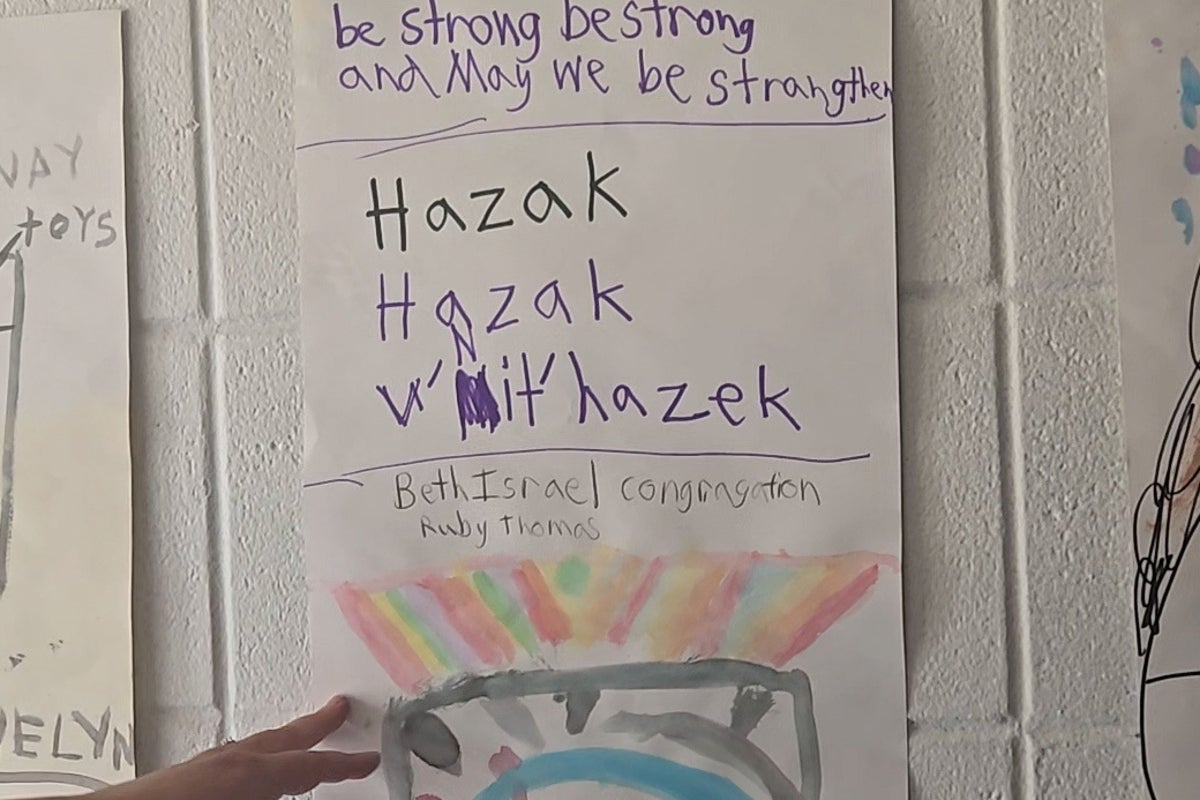 be strong be strong
and May we be strangthen
Hazak
Hazak
N
v' it' hazek
Beth Israel congragation
Ruby Thomas
toys
ELYN